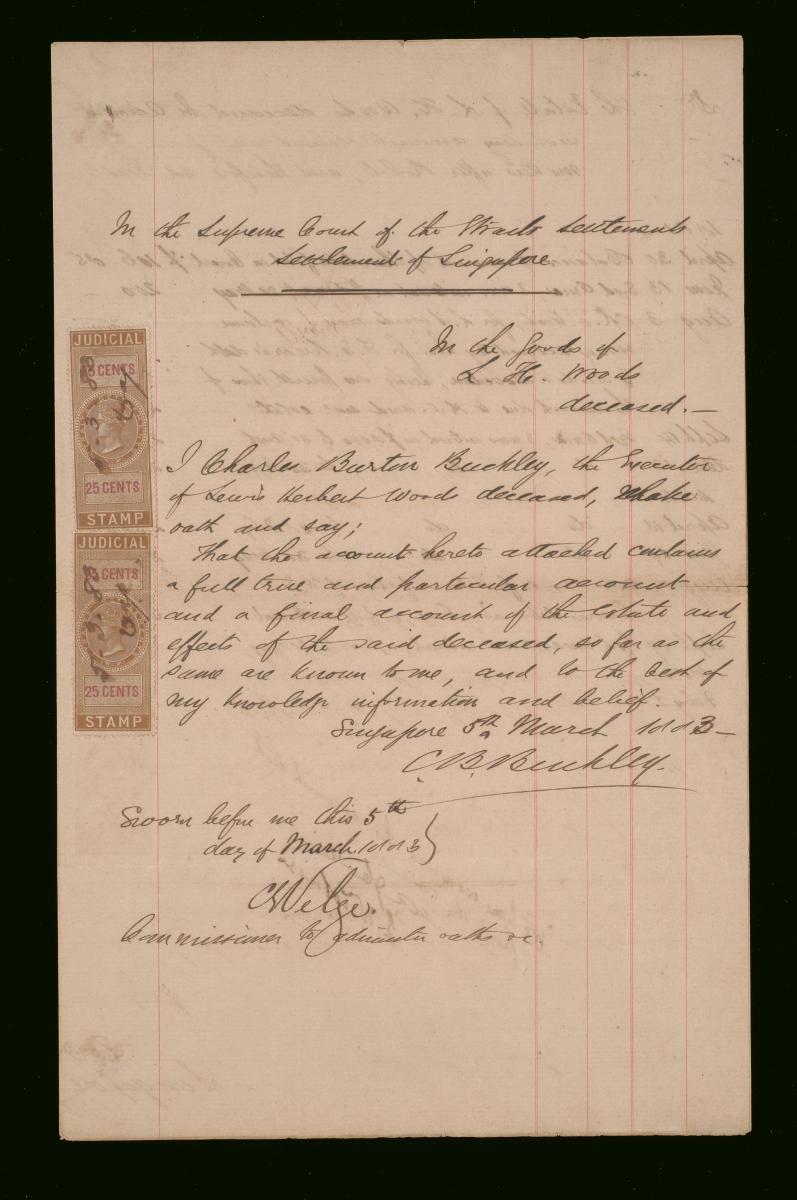 In the Supreme Court of the Straits Settlements
Settlement of Singapore
In the Goods of
L. H. Woods
deceased.—
I Charles Burton Buckley, the Executor
of Lewis Herbert Woods deceased, Make
oath and say;
That the account hereto attached contains
a full true and particular account
and a final account of the estate and
effects of the said deceased, so far as the
same are known to me, and to the best of
my knowledge information and belief.
Singapore 5th March 1883—
C. B. Buckley.
Sworn before me this 5th
day of March 1883
Commissioner to administer oaths &c.
JUDICIAL
25 CENTS
25 CENTS
STAMP
JUDICIAL
25 CENTS
25 CENTS
STAMP